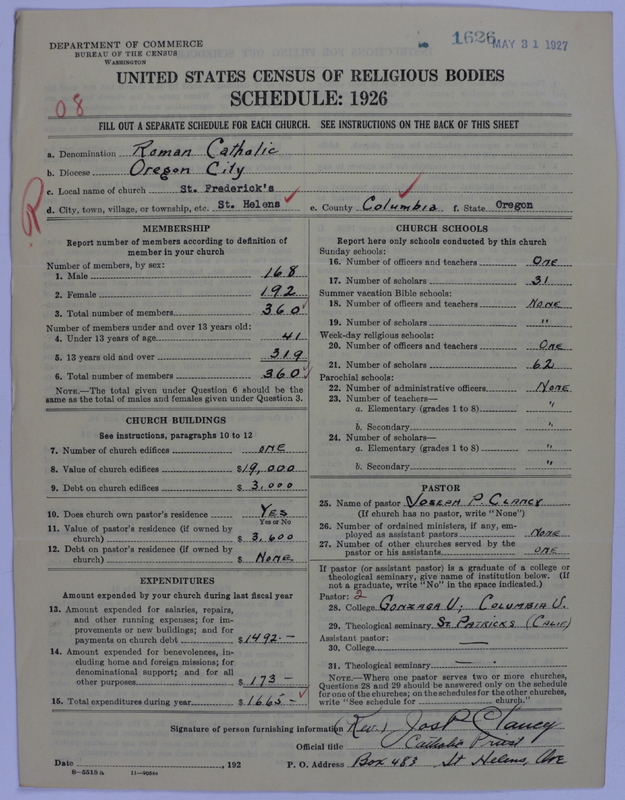 DEPARTMENT OF COMMERCE
BUREAU OF THE CENSUS
WASHINGTON
1626 MAY 31 1927
UNITED STATES CENSUS OF RELIGIOUS BODIES
SCHEDULE: 1926
08
FILL OUT A SEPARATE SCHEDULE FOR EACH CHURCH. SEE INSTRUCTIONS ON THE BACK OF THIS SHEET
a. Denomination Roman Catholic
b. Diocese Oregon City
c. Local name of church St. Frederick's
d. City, town, village, or township, etc. St. Helens e. County Columbia f. State Oregon
R
MEMBERSHIP
Report number of members according to definition of
member in your church
Number of members, by sex:
1. Male 168
2. Female 192
3. Total number of members 360
Number of members under and over 13 years old:
4. Under 13 years of age 41
5. 13 years old and over 319
6. Total number of members 360
NOTE.—The total given under Question 6 should be the
same as the total of males and females given under Question 3.
CHURCH BUILDINGS
See instructions, paragraphs 10 to 12
7. Number of church edifices ONE
8. Value of church edifices $19,000
9. Debt on church edifices $3,000
10. Does church own pastor's residence YES
Yes or No
11. Value of pastor's residence (if owned by
church) $3,600
12. Debt on pastor's residence (if owned by
church) $ NONE
EXPENDITURES
Amount expended by your church during last fiscal year
13. Amount expended for salaries, repairs,
and other running expenses; for im-
provements or new buildings; and for
payments on church debt $1492.—
14. Amount expended for benevolences, in-
cluding home and foreign missions; for
denominational support; and for all
other purposes $173—
15. Total expenditures during year $1665—
CHURCH SCHOOLS
Report here only schools conducted by this church
Sunday schools:
16. Number of officers and teachers ONE
17. Number of scholars 31
Summer vacation Bible schools:
18. Number of officers and teachers NONE
19. Number of scholars "
Week-day religious schools:
20. Number of officers and teachers ONE
21. Number of scholars 62
Parochial schools:
22. Number of administrative officers NONE
23. Number of teachers—
a. Elementary (grades 1 to 8) "
b. Secondary "
24. Number of scholars—
a. Elementary (grades 1 to 8) "
b. Secondary "
PASTOR
25. Name of pastor JOSEPH P. CLANCY
(If church has no pastor, write "None")
26. Number of ordained ministers, if any, em-
ployed as assistant pastors NONE
27. Number of other churches served by the
pastor or his assistants ONE
If pastor (or assistant pastor) is a graduate of a college or
theological seminary, give name of institution below. (If
not a graduate, write "No" in the space indicated.)
Pastor: 2
28. College GONZAGA U; COLUMBIA U.
29. Theological seminary ST. PATRICKS (CALIF)
Assistant pastor:
30. College —
31. Theological seminary — .
NOTE.—Where one pastor serves two or more churches,
Questions 28 and 29 should be answered only on the schedule
for one of the churches; on the schedules for the other churches,
write "See schedule for church."
Signature of person furnishing information (Rev.) Jos P Clancy
Official title Catholic Priest
Date , 192 P. O. Address Box 483 St Helens, Ore
8—5518a 11—9054